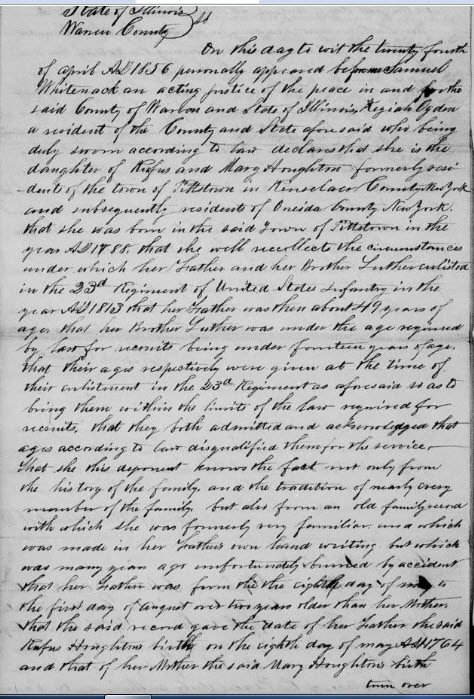 State of Illinois
Warren County } ss
On this day to wit the twenty fourth
of april AD 1856 personally appeared before me Samuel
Whitenack an acting justice of the peace in and for the
said County of Warren and State of Illinois, Keziah Ogden
a resident of the County and State aforesaid who being
duly sworn according to law declares that she is the
daughter of Rufus and Mary Houghton formerly resi
dents of the town of Pittstown in Rinselaer County New York
and subsequently residents of Oneida County New York.
that she was born in the said Town of Pittstown in the
year AD 1788, that she well recollects the circumstances
under which her Father and her Brother Luther enlisted
in the 23d Regiment of United States Infantry in the
year AD 1813 that her Father was then about 49 years of
age, that her Brother Luther was under the age required
by law for recruits being under fourteen years of age.
that their ages respectively were given at the time of
their enlistment in the 23d Regiment as aforesaid so as to
bring them within the limits of the law required for
recruits, that they both admitted and acknowledged that
ages according to law disqualified them for the service,
that she this deponent knows the fact not only from
the history of the family, and the tradition of nearly every
member of the family but also from an old family record
with which she was formerly very familiar and which
was made in her Father's own hand writing but which
was many years ago unfortunately burned by accident
that her Father was from the the eighth day of may to
the first day of august over two years older than her Mother
that the said record gave the date of her Father the said
Rufus Houghtons birth on the eighth day of may AD 1764
and that of her Mother the said Mary Houghtons birth
turn over